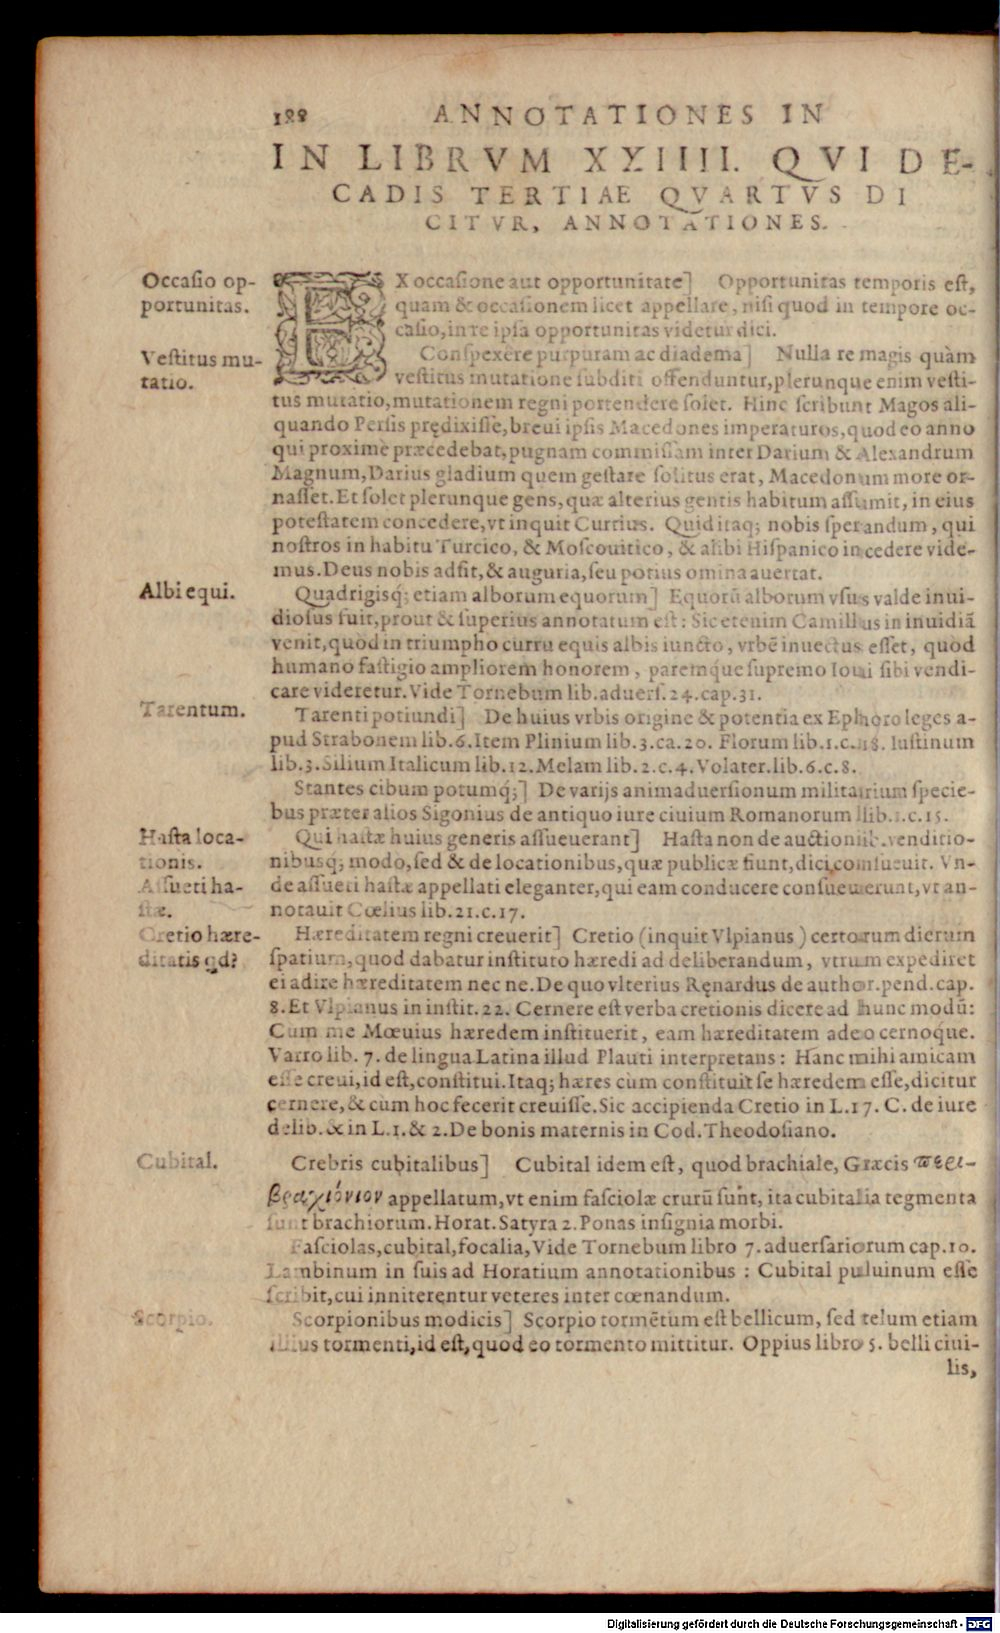 188 ANNOTATIONES IN
IN LIBRVM XXIIII. QVI DE-
CADIS TERTIAE QVARTVS DI
CITVR, ANNOTATIONES.
Occasio op-
portunitas.
EX occasione aut opportunitate] Opportunitas temporis est,
quam & occasionem licet appellare, nisi quod in tempore oc-
casio, in re ipsa opportunitas videtur dici.
Vestitus mu-
tatio.
Conspexêre purpuram ac diadema] Nulla re magis quàm
vestitus mutatione subditi offenduntur, plerunque enim vesti-
tus mutatio, mutationem regni portendere solet. Hinc scribunt Magos ali-
quando Persis prędixisse, breui ipsis Macedones imperaturos, quod eo anno
qui proximè præcedebat, pugnam commissam inter Darium & Alexandrum
Magnum, Darius gladium quem gestare solitus erat, Macedonum more or-
nasset. Et solet plerunque gens, quæ alterius gentis habitum assumit, in eius
potestatem concedere, vt inquit Curtius. Quid itaq; nobis sperandum, qui
nostros in habitu Turcico, & Moscouitico, & alibi Hispanico incedere vide-
mus. Deus nobis adsit, & auguria, seu potius omina auertat.
Albi equi.
Quadrigisq; etiam alborum equorum] Equorũ alborum vsus valde inui-
diosus fuit, prout & superius annotatum est: Sic etenim Camillus in inuidiã
venit, quòd in triumpho curru equis albis iuncto, vrbẽ inuectus esset, quòd
humano fastigio ampliorem honorem, paremq́ue supremo Ioui sibi vendi-
care videretur. Vide Tornebum lib. aduers. 24. cap. 31.
Tarentum.
Tarenti potiundi] De huius vrbis origine & potentia ex Ephoro leges a-
pud Strabonem lib. 6. Item Plinium lib. 3. ca. 20. Florum lib. 1. c. 18. Iustinum
lib. 3. Silium Italicum lib. 12. Melam lib. 2. c. 4. Volater. lib. 6. c. 8.
Stantes cibum potumq́;] De varijs animaduersionum militarium specie-
bus præter alios Sigonius de antiquo iure ciuium Romanorum lib. 1. c. 15.
Hasta loca-
tionis.
Assueti ha-
stæ.
Qui hastæ huius generis assueuerant] Hasta non de auctionib. venditio-
nibusq́; modo, sed & de locationibus, quæ publicæ fiunt, dici consueuit. Vn-
de assueti hastæ appellati eleganter, qui eam conducere consueuerunt, vt an-
notauit Cœlius lib. 21. c. 17.
Cretio hære-
ditatis qd?
Hæreditatem regni creuerit] Cretio (inquit Vlpianus) certorum dierum
spatium, quod dabatur instituto hæredi ad deliberandum, vtrum expediret
ei adire hæreditatem nec ne. De quo vlterius Ręnardus de author. pend. cap.
8. Et Vlpianus in instit. 22. Cernere est verba cretionis dicere ad hunc modũ:
Cum me Mœuius hæredem instituerit, eam hæreditatem adeo cernoq́ue.
Varro lib. 7. de lingua Latina illud Plauti interpretans: Hanc mihi amicam
esse creui, id est, constitui. Itaq; hæres cùm constituit se hæredem esse, dicitur
cernere, & cùm hoc fecerit creuisse. Sic accipienda Cretio in L. 17. C. de iure
delib. & in L. 1. & 2. De bonis maternis in Cod. Theodosiano.
Cubital.
Crebris cubitalibus] Cubital idem est, quod brachiale, Græcis περι-
βραχιόνιον appellatum, vt enim fasciolæ crurũ sunt, ita cubitalia tegmenta
sunt brachiorum. Horat. Satyra 2. Ponas insignia morbi.
Fasciolas, cubital, focalia, Vide Tornebum libro 7. aduersariorum cap. 10.
Lambinum in suis ad Horatium annotationibus: Cubital puluinum esse
scribit, cui inniterentur veteres inter cœnandum.
Scorpio.
Scorpionibus modicis] Scorpio tormẽtum est bellicum, sed telum etiam
illius tormenti, id est, quod eo tormento mittitur. Oppius libro 5. belli ciui-
lis,
Digitalisierung gefördert durch die Deutsche Forschungsgemeinschaft - DFG